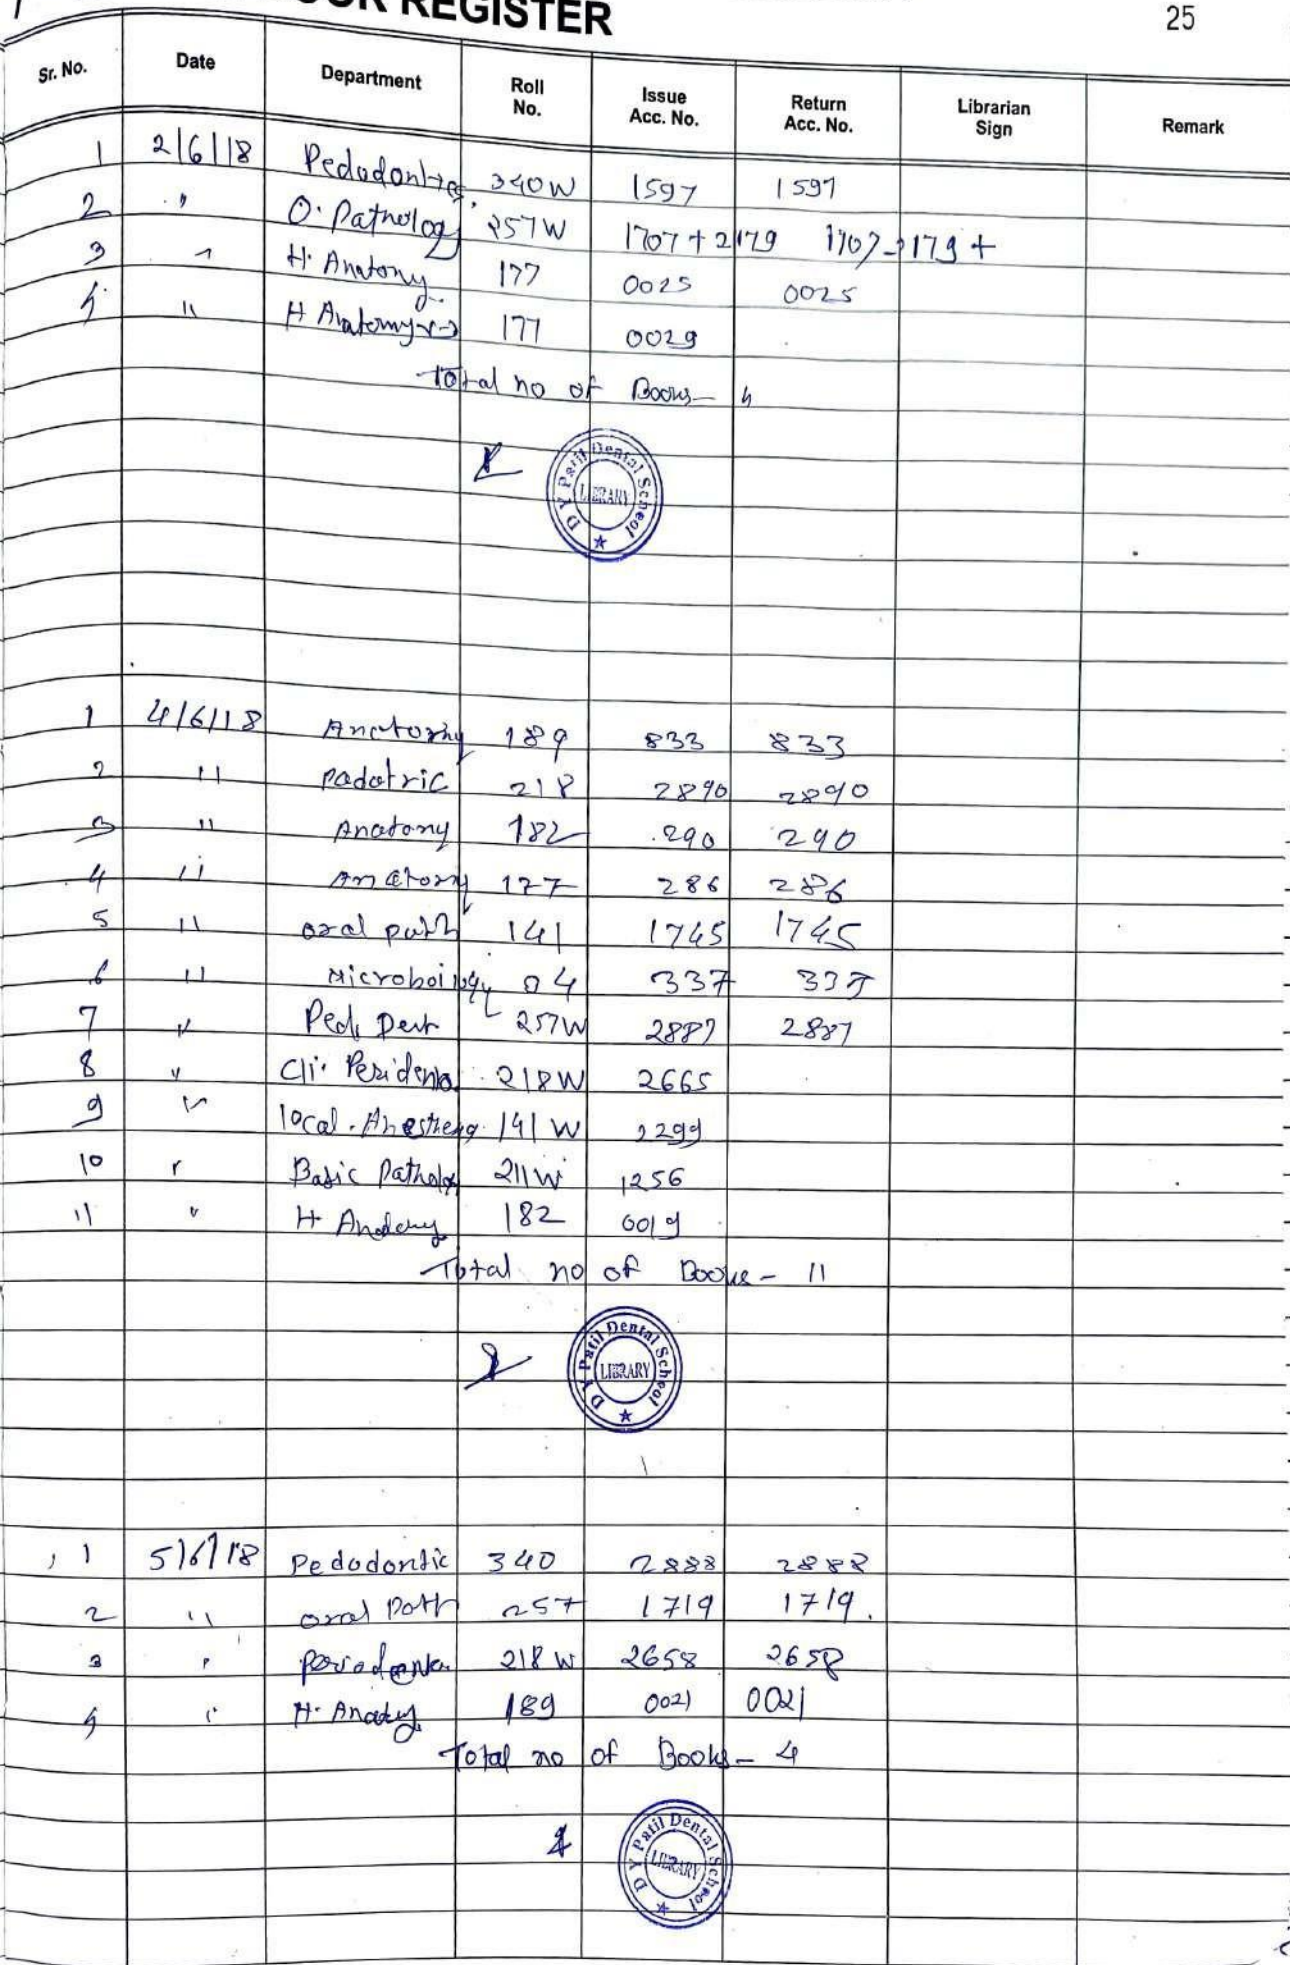 REGISTER
25
Sr. No. Date Department Roll No. Issue Acc. No. Return Acc. No. Librarian Sign Remark
1 2/6/18 Pedodontics 340W 1597 1597
2 " O. Patholog 257W 1707 + 2179 1707 - 2179 +
3 " H. Anatomy 177 0025 0025
4 " H Anatomy 177 0029
Total no of Books - 4
D Y Patil Dental School LIBRARY
1 4/6/18 Anatomy 189 833 833
2 " padatric 218 2890 2890
3 " Anatomy 182 290 290
4 " Anatomy 177 286 286
5 " oral path 141 1745 1745
6 " Microboilogy 04 337 337
7 " Ped. Dent 257W 2887 2887
8 " Cli. 218W 2665
9 " local. 141 W 2299
10 " Basic Patholog 211W 1256
11 " H 182 0019
Total no of Books - 11
D Y Patil Dental School LIBRARY
1 5/6/18 Pedodontic 340 2888 2888
2 " oral Path 257 1719 1719.
3 " 218 W 2658 2658
4 " H. 189 0021 0021
Total no of Books - 4
D Y Patil Dental School LIBRARY